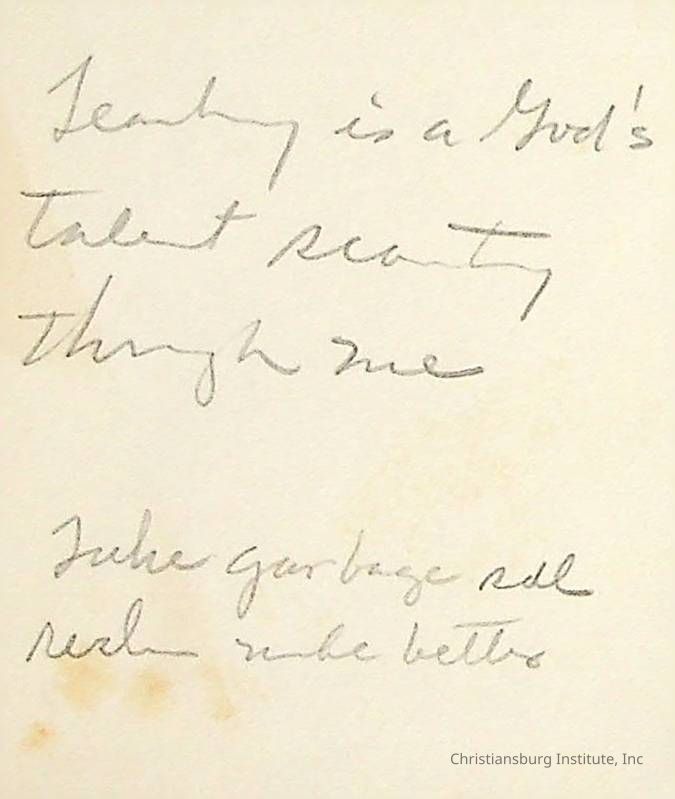 Teaching is a God's
talent scouting
through me
Take garbage
make better
Christiansburg Institute, Inc